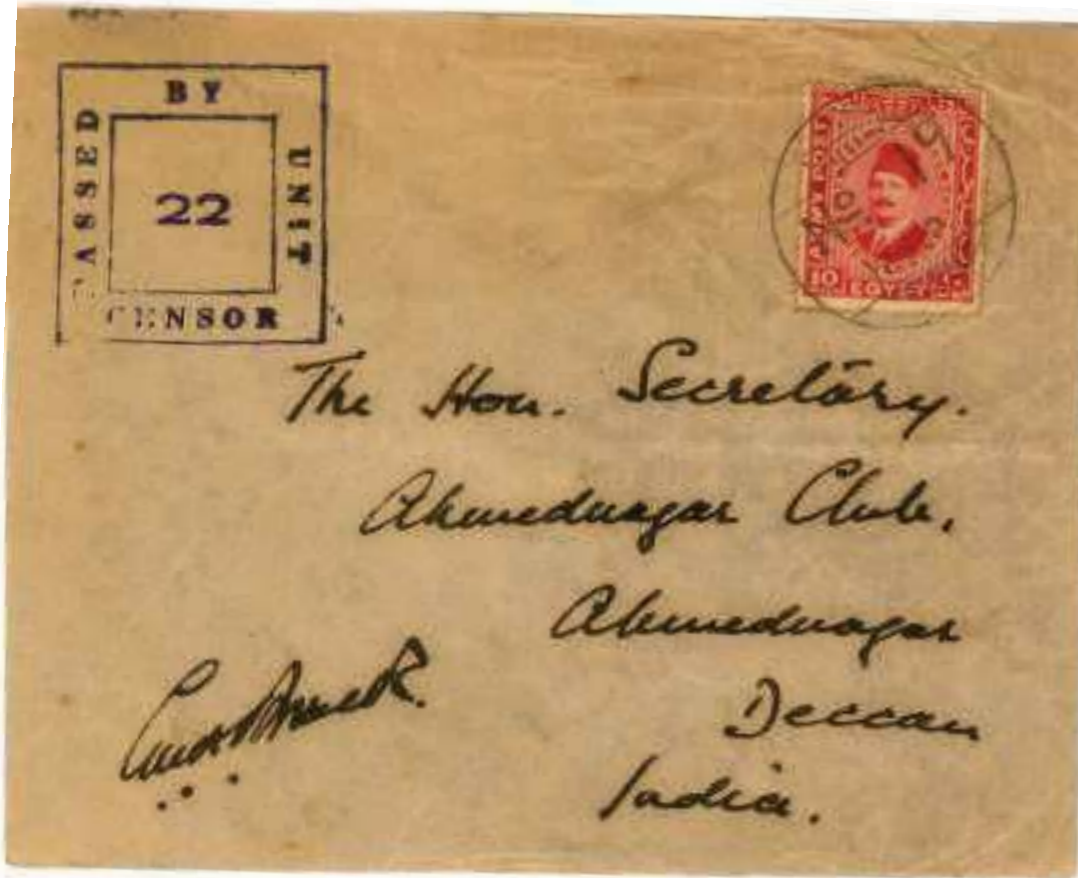 PASSED BY UNIT CENSOR
22
ARMY POST
10 EGYPT
The Hon. Secretary.
Ahmednagar Club.
Ahmednagar
Deccan
India.